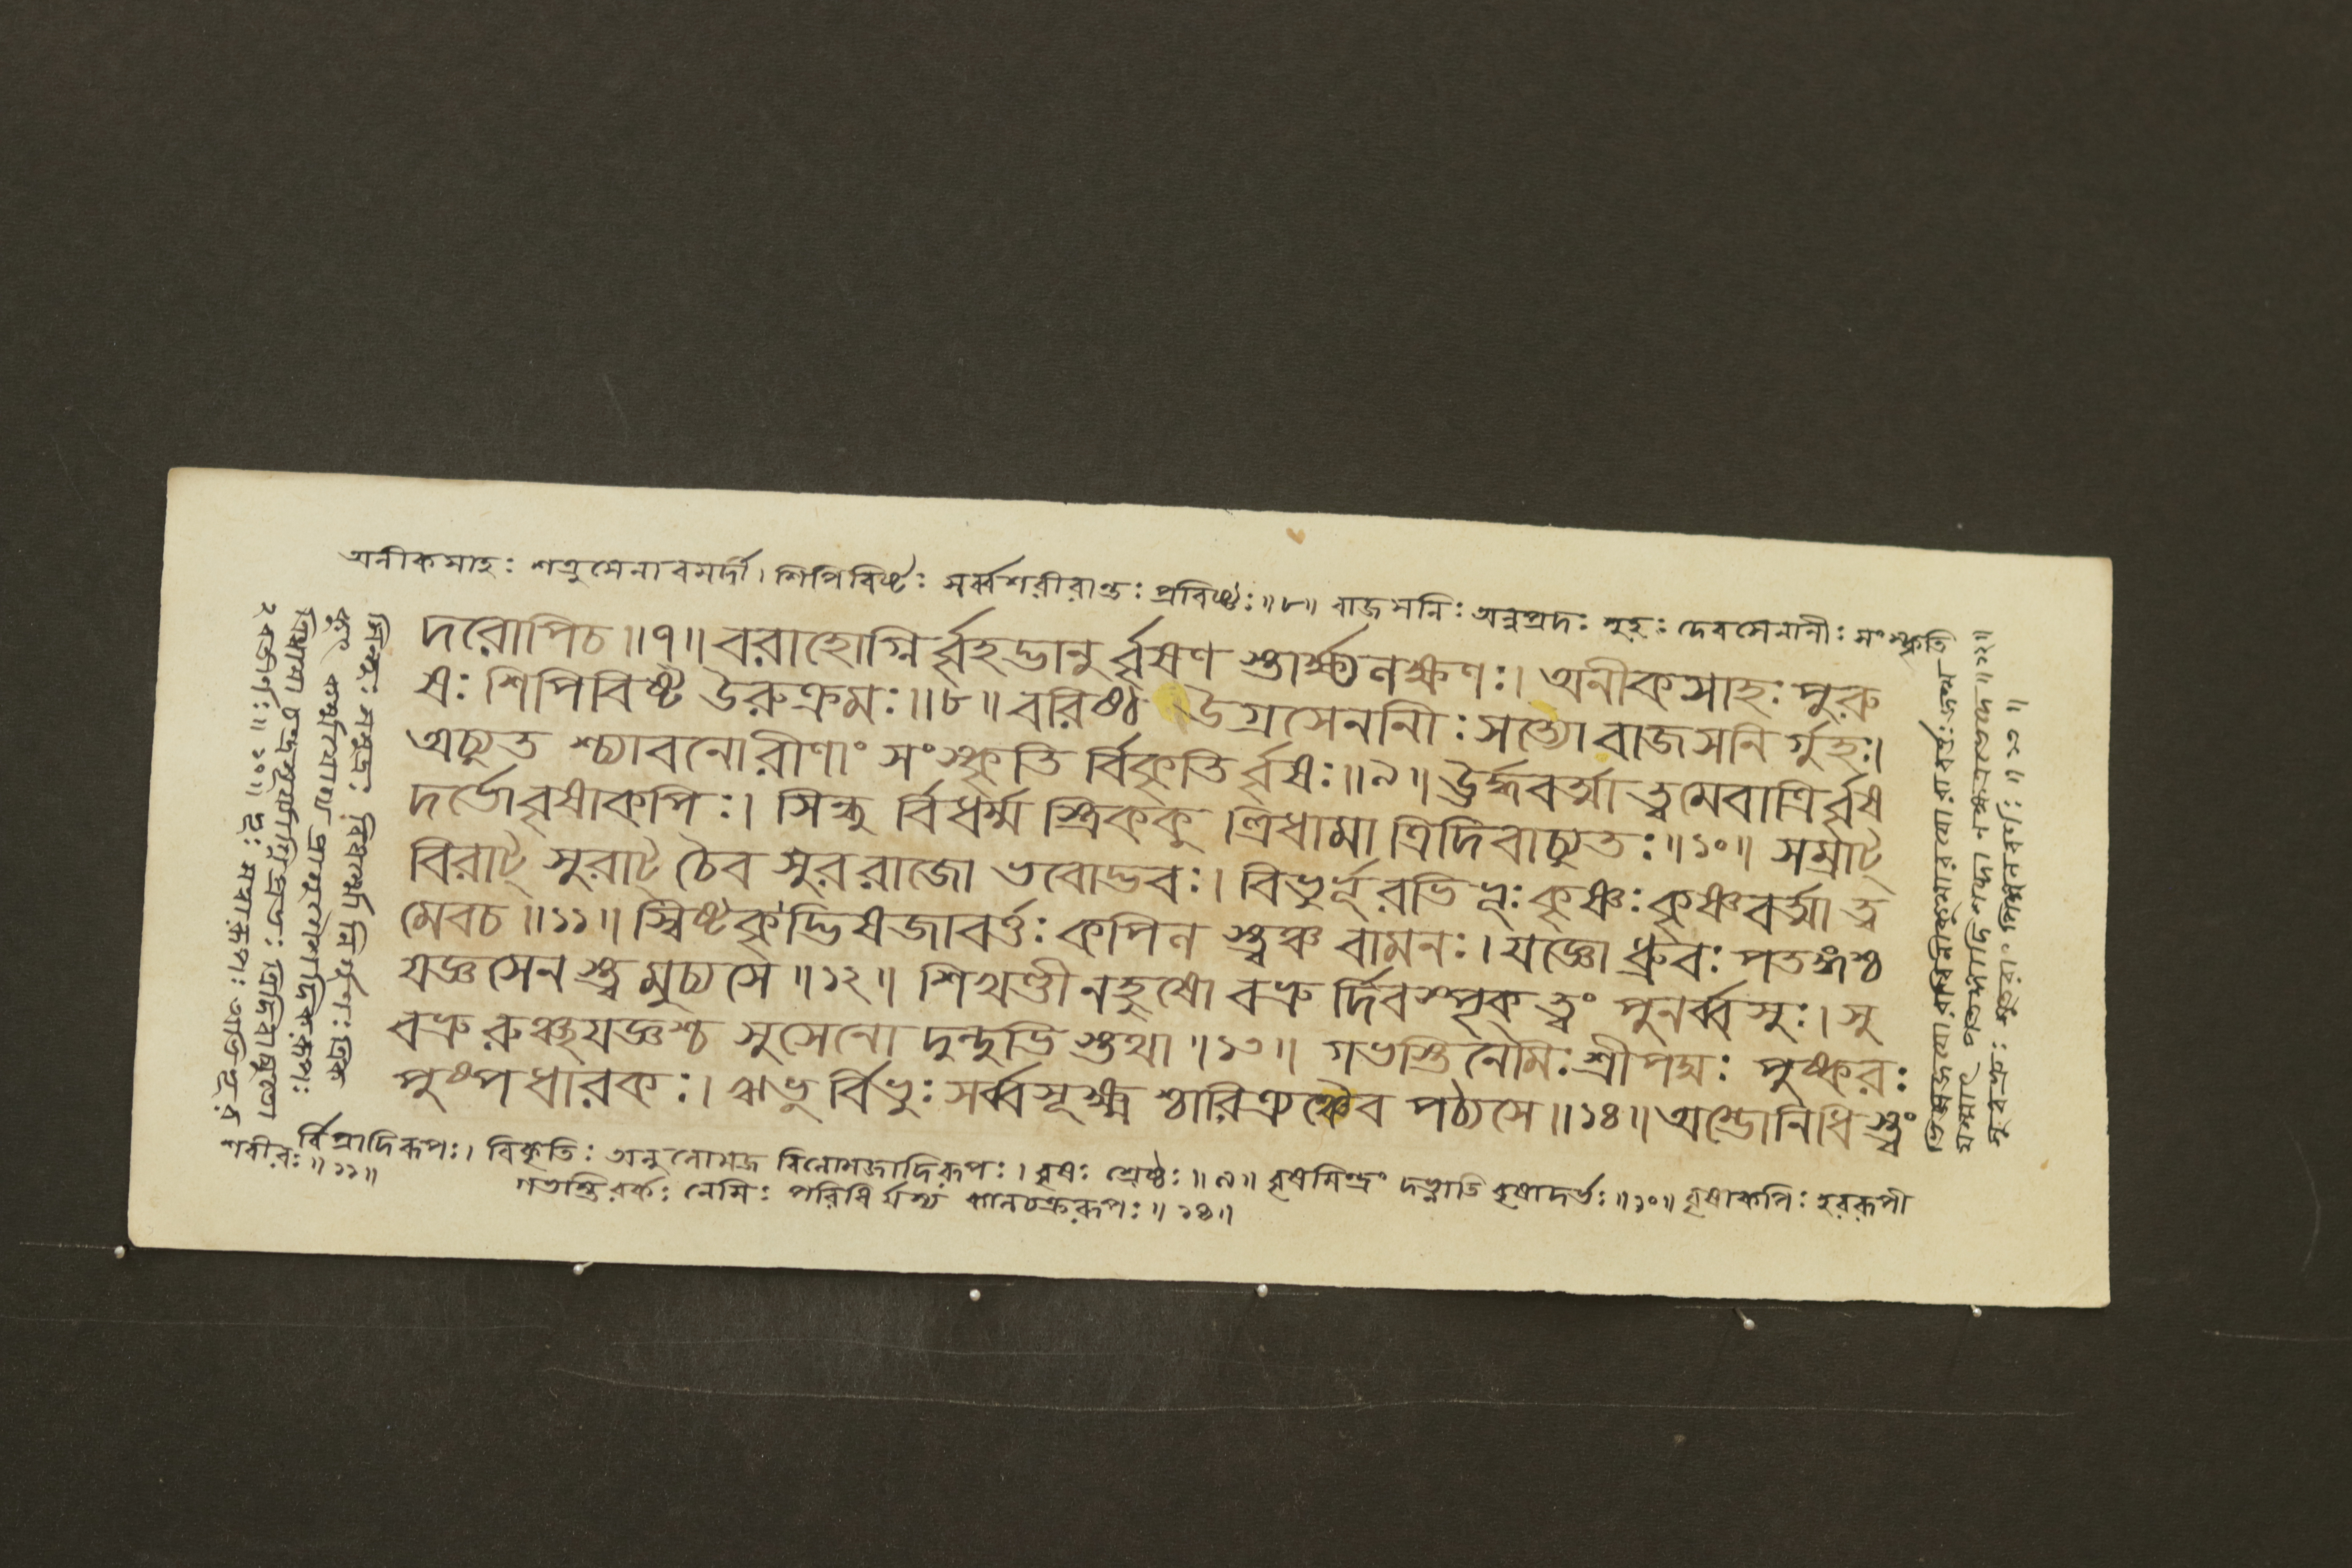 অনীকসাহঃ শত্রুসেনাবমর্দী। শিপিবিষ্টঃ সর্ব্বশরীরান্তঃ প্রবিষ্টঃ॥৮॥ বাজসনিঃ অন্নপ্রদঃ গুহঃ দেবসেনানীঃ সংস্কৃতি
দরোপিচ॥৭॥ বরাহোগ্নির্ব্বৃহদ্ভানুর্ব্বৃষণ স্তার্ক্ষ্যলক্ষণঃ। অনীকসাহঃ পুরু
ষঃ শিপিবিষ্ট উরুক্রমঃ॥৮॥ বরিষ্ঠ উগ্রসেননিীঃ সত্যো বাজসনি র্গুহঃ।
অচ্যুত শ্চ্যাবনোরীণাং সংস্কৃতি র্বিকৃতি র্ব্বৃষঃ॥৯॥ ঊর্দ্ধবর্ত্মা ত্বমেবাদ্রির্ব্বৃষ
দর্ভোবৃষাকপিঃ। সিন্ধু র্বিধর্ম্ম স্ত্রিককু ত্ত্রিধামা ত্রিদিবাচ্যুতঃ॥১০॥ সম্রাট্
বিরাট্ সুরাট্ চৈব সুররাজো ভবোদ্ভবঃ। বিভুর্ভূরভিভূঃ কৃষ্ণঃ কৃষ্ণবর্ত্মা ত্ব
মেবচ॥১১॥ স্বিষ্টকৃদ্ভিষজাবর্ত্তঃ কপিল স্ত্বঞ্চ বামনঃ। যজ্ঞো ধ্রুবঃ পতঙ্গশ্চ
যজ্ঞসেন স্ত্বমুচ্যসে॥১২॥ শিখণ্ডী নহুষো বভ্রু র্দিবস্পৃক্ ত্বং পুনর্ব্বসুঃ। সু
বভ্রু রুক্ষযজ্ঞশ্চ সুসেনো দুন্দুভি স্তথা॥১৩॥ গভস্তিনেমিঃ শ্রীপদ্মঃ পুষ্করঃ
পুষ্পধারকঃ। ঋভু র্বিভুঃ সর্ব্বসূক্ষ্ম শ্চারিত্রঞ্চৈব পঠ্যসে॥১৪॥ অম্ভোনিধি স্ত্বং
র্বিপ্রাদিরূপঃ। বিকৃতিঃ অনুলোমজ বিলোমজাদিরূপঃ। বৃষঃ শ্রেষ্ঠঃ॥৯॥ বৃষমিন্দ্রং দভ্নোতি বৃষাদর্ভঃ॥১০॥ বৃষাকপিঃ হররূপী
গভস্তিরর্কঃ নেমিঃ পরিধি র্যস্য কালচক্ররূপঃ॥১৪॥
সিন্ধুঃ সমুদ্রঃ বিধর্ম্মো নির্গুণঃ ত্রিক
ত্রিধামা চন্দ্রসূর্য্যাগ্নিপ্রভঃ ত্রিদিবাচ্যুতো
২বতীর্ণঃ॥১০॥ ভূঃ সত্তারূপঃ অভিভূর
শরীরঃ॥১১॥